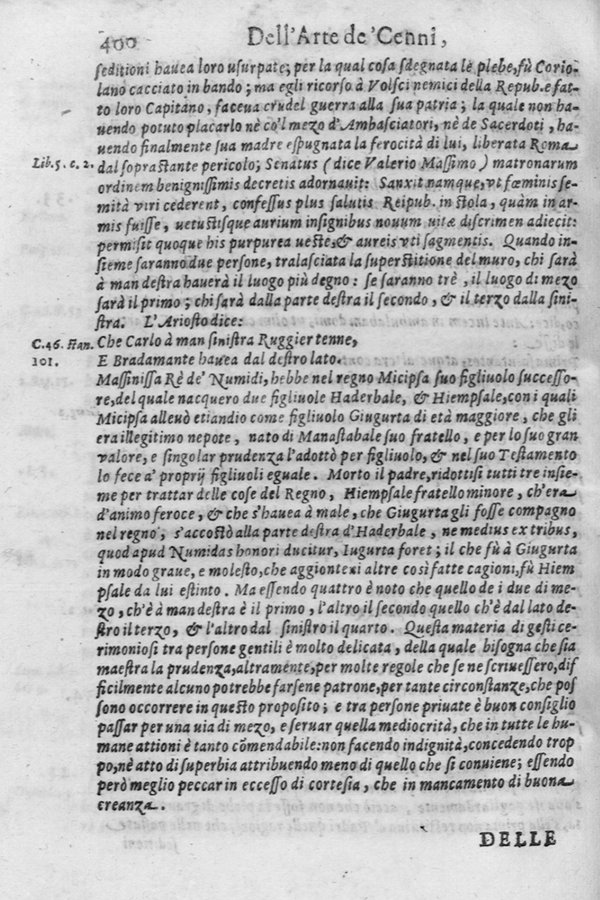 400 Dell'Arte de'Cenni,
seditioni hauea loro usurpate; per la qual cosa sdegnata le plebe, fù Corio-
lano cacciato in bando; ma egli ricorso à Volsci nemici della Repub. e fat-
to loro Capitano, faceua crudel guerra alla sua patria; la quale non ha-
uendo potuto placarlo nè co'l mezo d'Ambasciatori, nè de Sacerdoti, ha-
uendo finalmente sua madre espugnata la ferocità di lui, liberata Roma
Lib. 5. c. 2. dal soprastante pericolo; Senatus (dice Valerio Massimo) matronarum
ordinem benignissimis decretis adornauit: Sanxit namque, vt fœminis se-
mità viri cederent, confessus plus salutis Reipub. in stola, quàm in ar-
mis fuisse, uetustisque aurium insignibus nouum uitæ discrimen adiecit:
permisit quoque his purpurea ueste, & aureis vti sagmentis. Quando in-
sieme saranno due persone, tralasciata la superstitione del muro, chi sarà
à man destra hauerà il luogo più degno: se saranno trè, il luogo di mezo
sarà il primo; chi sarà dalla parte destra il secondo, & il terzo dalla sini-
stra. L'Ariosto dice:
C. 46. stan. Che Carlo à man sinistra Ruggier tenne,
101. E Bradamante hauea dal destro lato.
Massinissa Rè de' Numidi, hebbe nel regno Micipsa suo figliuolo successo-
re, del quale nacquero due figliuole Haderbale, & Hiempsale, con i quali
Micipsa alleuò etiandio come figliuolo Giugurta di età maggiore, che gli
era illegitimo nepote, nato di Manastabale suo fratello, e per lo suo gran
valore, e singolar prudenza l'adottò per figliuolo, & nel suo Testamento
lo fece a' proprij figliuoli eguale. Morto il padre, ridottisi tutti tre insie-
me per trattar delle cose del Regno, Hiempsale fratello minore, ch'era
d'animo feroce, & che s'hauea à male, che Giugurta gli fosse compagno
nel regno, s'accostò alla parte destra d'Haderbale, ne medius ex tribus,
quod apud Numidas honori ducitur, Iugurta foret; il che fù à Giugurta
in modo graue, e molesto, che aggionte xi altre così fatte cagioni, fù Hiem
psale da lui estinto. Ma essendo quattro è noto che quello de i due di me-
zo, ch'è à man destra è il primo, l'altro il secondo quello ch'è dal lato de-
stro il terzo, & l'altro dal sinistro il quarto. Questa materia di gesti ce-
rimoniosi tra persone gentili è molto delicata, della quale bisogna che sia
maestra la prudenza, altramente, per molte regole che se ne scriuessero, dif
ficilmente alcuno potrebbe farsene patrone, per tante circonstanze, che pos
sono occorrere in questo proposito; e tra persone priuate è buon consiglio
passar per una uia di mezo, e seruar quella mediocrità, che in tutte le hu-
mane attioni è tanto cõmendabile: non facendo indignità, concedendo trop
po, nè atto di superbia attribuendo meno di quello che si conuiene; essendo
però meglio peccar in eccesso di cortesia, che in mancamento di buona
creanza.
DELLE